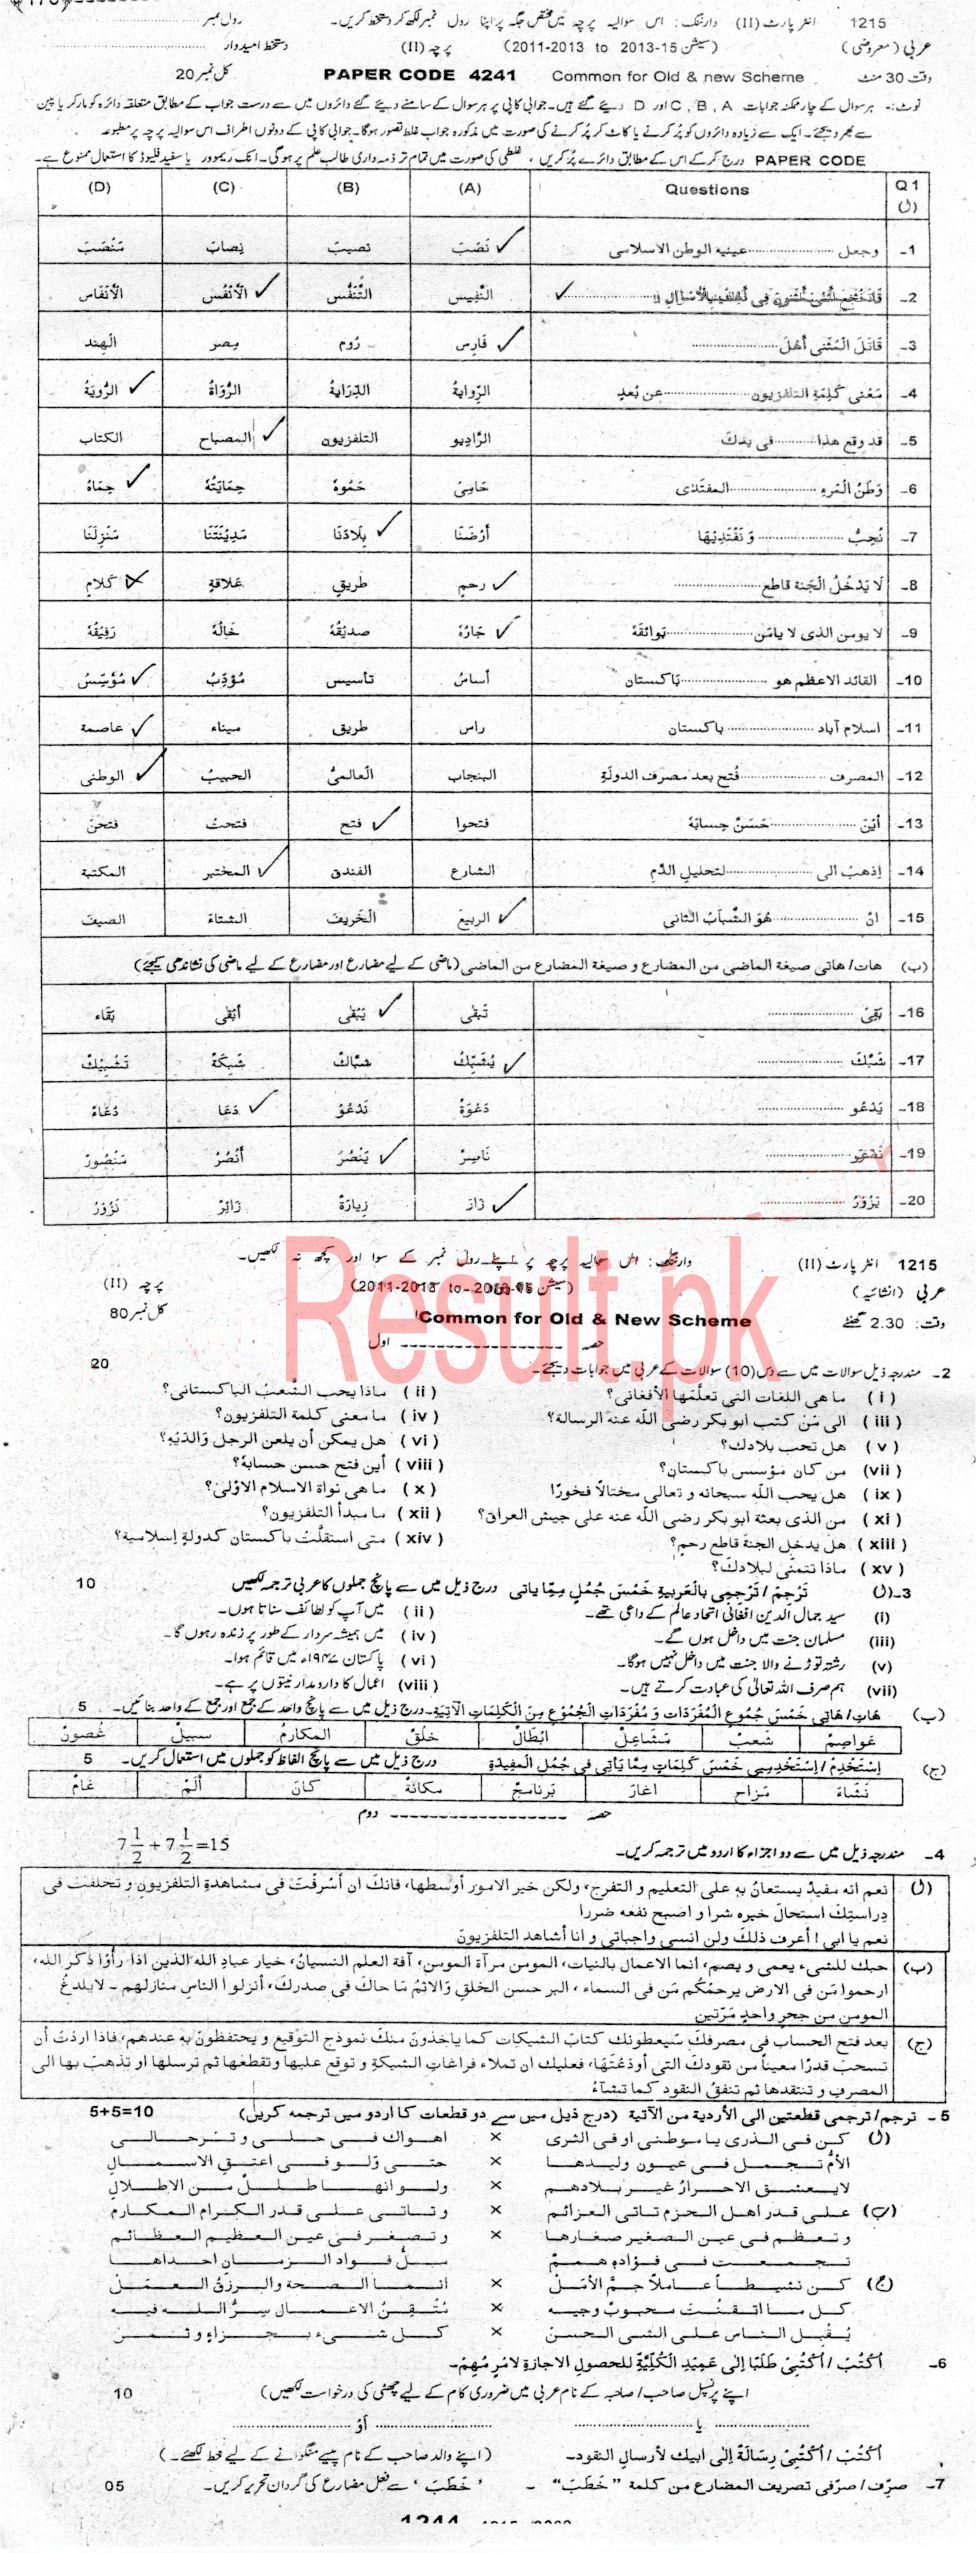 1215 انٹر پارٹ (II) وارننگ: اس سوالیہ پرچہ میں مختص جگہ پر اپنا رول نمبر لکھ کر دستخط کریں۔ رول نمبر
عربی (معروضی) (سیشن 15-2013 to 2011-2013) پرچہ (II) دستخط امیدوار
وقت 30 منٹ Common for Old & new Scheme PAPER CODE 4241 کل نمبر 20
نوٹ:- ہر سوال کے چار ممکنہ جوابات A ، B ، C اور D دیئے گئے ہیں۔ جوابی کاپی پر ہر سوال کے سامنے دیئے گئے دائروں میں سے درست جواب کے مطابق متعلقہ دائرہ کو مارکر یا پین
سے بھر دیجئے۔ ایک سے زیادہ دائروں کو پُر کرنے یا کاٹ کر پُر کرنے کی صورت میں مذکورہ جواب غلط تصور ہوگا۔ جوابی کاپی کے دونوں اطراف اس سوالیہ پرچہ پر مطبوعہ
PAPER CODE درج کر کے اس کے مطابق دائرے پُر کریں، غلطی کی صورت میں تمام تر ذمہ داری طالب علم پر ہوگی۔ انک ریموور یا سفید فلیوڈ کا استعمال ممنوع ہے۔
Q 1 (ا) Questions (A) (B) (C) (D)
1- وجعل .......... عينيه الوطن الاسلامى نَصَبَ نصيبَ نِصابَ مَنْصَبَ
2- النَّفِيس التَّنَفُّس الْأَنْفُس الْأَنْفَاس
3- قَاتَلَ الْمُثَنى أهْلَ .......... فَارِس رُوم مِصر الْهِند
4- مَعْنى كَلِمَةِ التلفزيون .......... عن بُعدٍ الرِّوايةُ الدِّرَايةُ الرُّوَاةُ الرُّويَةُ
5- قد وقع هذا .......... فى يدكَ الرَّاديو التلفزيون المصباح الكتاب
6- وَطَنُ الْمَرءِ .......... المفتَدٰى حَامِىْ حَمُوهُ حِمَايَتُهُ حِمَاهُ
7- نُحِبُّ .......... وَنَفْتَدِيْهَا أَرْضَنَا بِلَادَنَا مَدِيْنَتَنَا مَنْزِلَنَا
8- لَا يَدْخُلُ الْجَنة قاطع .......... رحمٍ طَرِيقٍ عَلَاقةٍ كَلَامٍ
9- لا يومن الذى لا يامَن .......... بَوائقهُ جَارُهُ صديقُهُ خَالُهُ رَفِيْقُهُ
10- القائد الاعظم هو .......... باكستان أساسُ تأسيس مُؤدِّبُ مُؤَسِّسُ
11- اسلام آباد .......... باكستان راس طريق ميناء عاصمة
12- المصرف .......... فُتح بعد مصرف الدولَةِ البنجاب الْعالمىُّ الحبيبُ الوطنى
13- أيْنَ .......... حَسَنٌ حِسابَهُ فتحوا فتح فتحتْ فتحنَ
14- إذهبْ الى .......... لتحليلِ الدَّمِ الشارع الفندق المختبر المكتبة
15- انَّ .......... هُوَ الشَّبابُ الثَّانى الربيعَ الْخَريفَ الشتاءَ الصيفَ
(ب) هات/هاتى صيغة الماضى من المضارع و صيغة المضارع من الماضى (ماضی کے لیے مضارع اور مضارع کے لیے ماضی کی نشاندھی کیجئے)
16- بَقِىَ .......... تَبقٰى يَبْقٰى أبْقٰى بَقَاء
17- شَبَّكَ .......... يُشَبِّكُ شبَّاكٌ شَبكَةٌ تَشبِيْكٌ
18- يَدْعُو .......... دَعْوَةٌ تَدْعُوْ دَعَا دُعَاءٌ
19- .......... نَاصِرٌ يَنْصُرُ أَنْصُرُ مَنْصُورٌ
20- يَزُوْرُ .......... زَارَ زِيارَةٌ زَائِرٌ نَزُوْرُ
1215 انٹر پارٹ (II) وارننگ: اس سوالیہ پرچہ پر اپنے رول نمبر کے سوا اور کچھ نہ لکھیں۔
عربی (انشائیہ) پرچہ (II)
وقت: 2.30 گھنٹے Common for Old & New Scheme کل نمبر 80
حصہ اول
Result.pk
2- مندرجہ ذیل سوالات میں سے دس (10) سوالات کے عربی میں جوابات دیجئے۔ 20
(i) ما هى اللغات التى تعلَّمها الأفغانى؟ (ii) ماذا يحب الشَّعبُ الباكستانى؟
(iii) الى مَن كتب ابو بكر رضى اللّٰه عنه الرسالة؟ (iv) ما معنى كلمة التلفزيون؟
(v) هل تحب بلادك؟ (vi) هل يمكن أن يلعن الرجل وَالدَيْهِ؟
(vii) من كان مؤسس باكستان؟ (viii) أين فتح حسن حسابهٗ؟
(ix) هل يحب اللّٰه سبحانه و تعالى مختالًا فخورًا (x) ما هى نواة الاسلام الاوّلىٰ؟
(xi) من الذى بعثهٗ ابو بكر رضى اللّٰه عنه على جيش العراق؟ (xii) ما مبدأ التلفزيون؟
(xiii) هل يدخل الجنة قاطع رحم؟ (xiv) متى استقلَّت باكستان كدولةٍ إسلامية؟
(xv) ماذا تتمنّى لبلادكَ؟
3-(ا) تَرْجِمْ/تَرْجِمِى بِالْعَرَبِيةِ خَمْسَ جُمَلٍ مِمَّا ياتى درج ذیل میں سے پانچ جملوں کا عربی ترجمہ لکھیں 10
(i) سید جمال الدین افغانی اتحاد عالم کے داعی تھے۔ (ii) میں آپ کو لطائف سناتا ہوں۔
(iii) مسلمان جنت میں داخل ہوں گے۔ (iv) میں ہمیشہ سردار کے طور پر زندہ رہوں گا۔
(v) رشتہ توڑنے والا جنت میں داخل نہیں ہوگا۔ (vi) پاکستان ۱۹۴۷ء میں قائم ہوا۔
(vii) ہم صرف اللہ تعالیٰ کی عبادت کرتے ہیں۔ (viii) اعمال کا دارومدار نیتوں پر ہے۔
(ب) هَاتِ/هَاتِى خَمْسَ جُمُوعِ الْمُفْرَدَاتِ وَ مُفْرَدَاتِ الْجُمُوْعِ مِنَ الْكَلِمَاتِ الْآتِيَةِ۔ درج ذیل میں سے پانچ واحد کے جمع اور جمع کے واحد بنائیں۔ 5
عَواصِمُ شعبٌ مَشَاعِلُ ابْطَالٌ خلقٌ المكارمُ سبيلٌ غصونٌ
(ج) اِسْتَخْدِمْ/اِسْتَخْدِمِى خَمْسَ كَلِمَاتٍ مِمَّا يَأتِى فِى جُمَلِ الْمفِيْدَةِ درج ذیل میں سے پانچ الفاظ کو جملوں میں استعمال کریں۔ 5
نَشَاءَ مَزاح اغارَ بَرنامجٌ مكانَةٌ كانَ المٌ عَامٌ
حصہ دوم
4- مندرجہ ذیل میں سے دو اجزاء کا اردو میں ترجمہ کریں۔ 7 1/2 + 7 1/2 = 15
(ا) نعم انه مفيدٌ يستعانُ بهٖ على التعليم و التفرج، ولكن خير الامور أوسطها، فانكَ ان أسْرفْتَ فى مشاهدةِ التلفزيون و تخلفت فى
دِراستِكَ استحالَ خيره شرا و اصبح نفعه ضررا
نعم يا ابى! أعرف ذلكَ ولن انسى واجباتى و انا أشاهد التلفزيونَ
(ب) حبك للشىء يعمى و يصم، انما الاعمال بالنيات، المومن مرآة المومن، آفة العلم النسيانُ، خيار عبادِ اللهِ الذين اذا رأوا ذُكِرَ اللهُ،
ارحموا مَن فى الارض يرحمْكُم مَن فى السماء، البر حسن الخلقِ وَالاثمُ مَا حاكَ فى صدركَ، أنزلوا الناس منازلهم - لا يلدغُ
المومن من جحرٍ واحدٍ مَرّتين
(ج) بعد فتح الحساب فى مصرفكَ سَيعطونكَ كتابَ الشيكات كما ياخذونَ منكَ نموذج التوقيع و يحتفظونَ بهٖ عندهم، فاذا اردتَ أن
تسحبَ قدرًا معينًا من نقودكَ التى أودَعْتَهَا، فعليكَ ان تملاءَ فراغاتِ الشيكةِ و توقع عليها وتقطعها ثم ترسلها او تذهبَ بها الى
المصرفِ و تنتقدها ثم تنفقُ النقود كما تشآءُ
5- ترجم/ترجمى قطعتين الى الأردية من الآتية (درج ذیل میں سے دو قطعات کا اردو میں ترجمہ کریں) 5+5=10
(ا) كن فى الذرى يا موطنى او فى الثرى × اهواك فى حلى و ترحالى
الأمُّ تجمل فى عيون وليدها × حتى وَلو فى اعتق الاسمالِ
لا يعشق الاحرارُ غير بلادهم × ولو انها طللٌ من الاطلالِ
(ب) على قدر اهل الحزم تاتى العزائم × و تاتى على قدر الكرام المكارم
و تعظم فى عين الصغير صغارها × و تصغر فى عين العظيم العظائم
تجمعت فى فؤادهٖ هممٌ × ملُّ فواد الزمانِ احداها
(ج) كن نشيطًا عاملًا جمَّ الأمَلْ × انما الصحة والرزقُ العمَلْ
كل ما اتقنْتَ محبوبٌ وجيه × مُتْقِنُ الاعمال سِرُّ اللهِ فيه
يُقْبِل الناس على الشى الحسن × كل شىء بجزاءٍ و ثمن
6- اُكْتُبْ/اُكْتُبِىْ طَلَبًا إلى عَمِيْدِ الْكُلِّيَّةِ للحصولِ الاجازةِ لامْرٍ مُهِمٍّ۔
اپنے پرنسپل صاحب/صاحبہ کے نام عربی میں ضروری کام کے لیے چھٹی کی درخواست لکھیں) 10
یا أوْ
اُكْتُبْ/اُكْتُبِىْ رِسَالَةً إلى ابيك لأرسالِ النقود۔ (اپنے والد صاحب کے نام پیسے منگوانے کے لیے خط لکھئے۔)
7- صرِّف/صرِّفى تصريف المضارع من كلمة "خَطَبَ" - 'خَطَبَ' سے فعل مضارع کی گردان تحریر کریں۔ 05